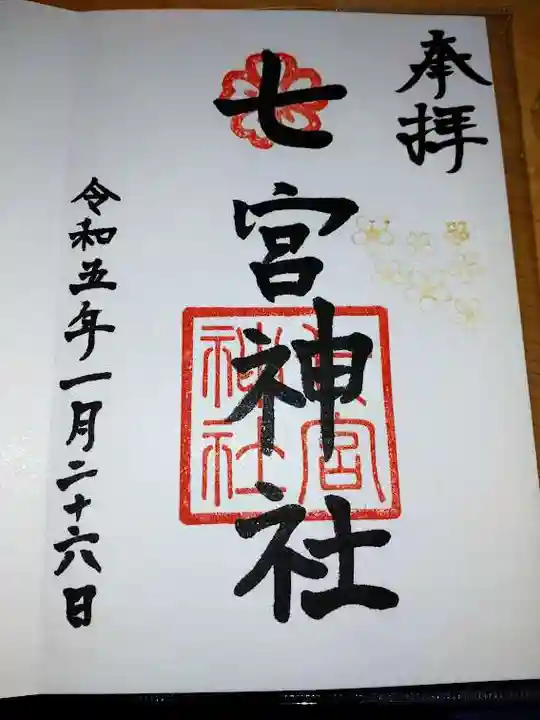 奉拝
七宮神社
七宮神社
令和五年一月二十六日